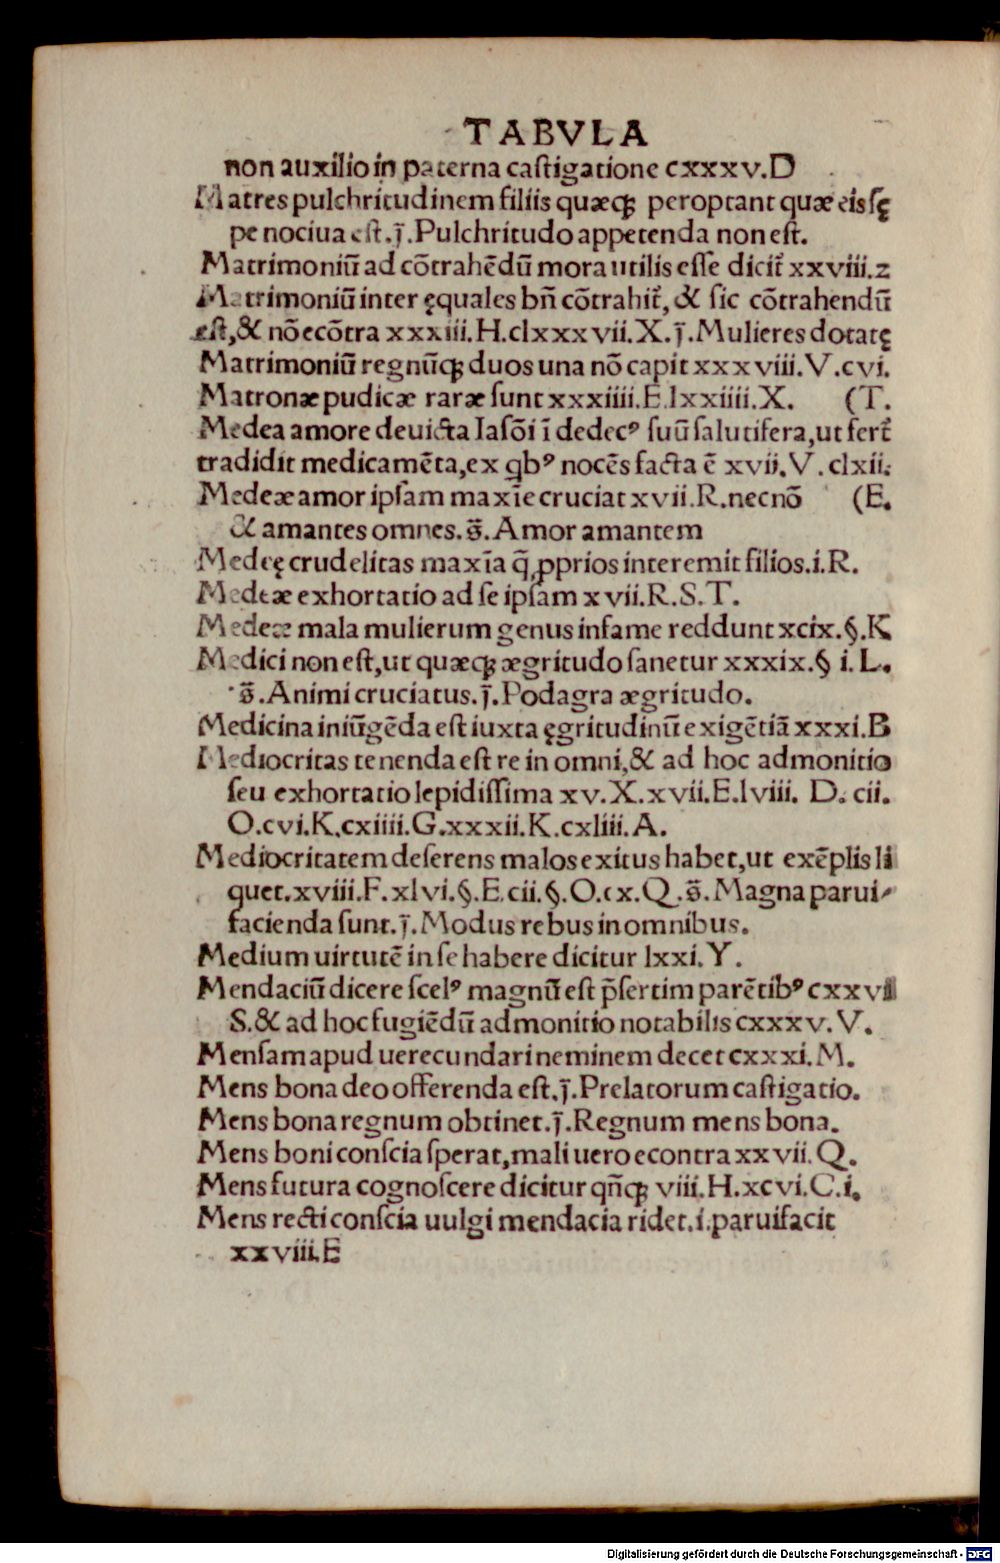 TABVLA
non auxilio in paterna caſtigatione cxxxv.D
Matres pulchritudinem filiis quæcꝫ peroptant quæ eis ſę
pe nociua eſt.j̄.Pulchritudo appetenda non eſt.
Matrimoniū ad cōtrahēdū mora utilis eſſe dicit̉ xxviii.z
Matrimoniū inter ęquales bn̄ cōtrahit̉, & ſic cōtrahendū
eſt,& nō ecōtra xxxiii.H.clxxxvii.X.j̄.Mulieres dotatę
Matrimoniū regnūcꝫ duos una nō capit xxxviii.V.cvi.
Matronæ pudicæ raræ ſunt xxxiiii.E.lxxiiii.X. (T.
Medea amore deuicta Iaſōi ī dedecꝰ ſuū ſalutifera,ut fert̉
tradidit medicamēta,ex qbꝰ nocēs facta ē xvii.V.clxii.
Medeæ amor ipſam maxīe cruciat xvii.R.necnō (E.
& amantes omnes.s̄.Amor amantem
Medeę crudelitas maxīa q̄ ꝓprios interemit filios.i.R.
Medeæ exhortatio ad ſe ipſam xvii.R.S.T.
Medeæ mala mulierum genus infame reddunt xcix.§.K
Medici non eſt,ut quæcꝫ ægritudo ſanetur xxxix.§ i.L.
s̄.Animi cruciatus.j̄.Podagra ægritudo.
Medicina iniūgēda eſt iuxta ęgritudinū exigētiā xxxi.B
Mediocritas tenenda eſt re in omni,& ad hoc admonitio
ſeu exhortatio lepidiſſima xv.X.xvii.E.lviii. D.cii.
O.cvi.K.cxiiii.G.xxxii.K.cxliii.A.
Mediocritatem deſerens malos exitus habet,ut exēplis li
quet.xviii.F.xlvi.§.E.cii.§.O.cx.Q.s̄.Magna parui⸗
facienda ſunt.j̄.Modus rebus in omnibus.
Medium uirtutē in ſe habere dicitur lxxi.Y.
Mendaciū dicere ſcelꝰ magnū eſt p̄ſertim parētibꝰ cxxvii
S.& ad hoc fugiēdū admonitio notabilis cxxxv.V.
Menſam apud uerecundari neminem decet cxxxi.M.
Mens bona deo offerenda eſt.j̄.Prelatorum caſtigatio.
Mens bona regnum obtinet.j̄.Regnum mens bona.
Mens boni conſcia ſperat,mali uero econtra xxvii.Q.
Mens futura cognoſcere dicitur qn̄cꝫ viii.H.xcvi.C.i.
Mens recti conſcia uulgi mendacia ridet.i.paruifacit
xxviii.E
Digitalisierung gefördert durch die Deutsche Forschungsgemeinschaft - DFG